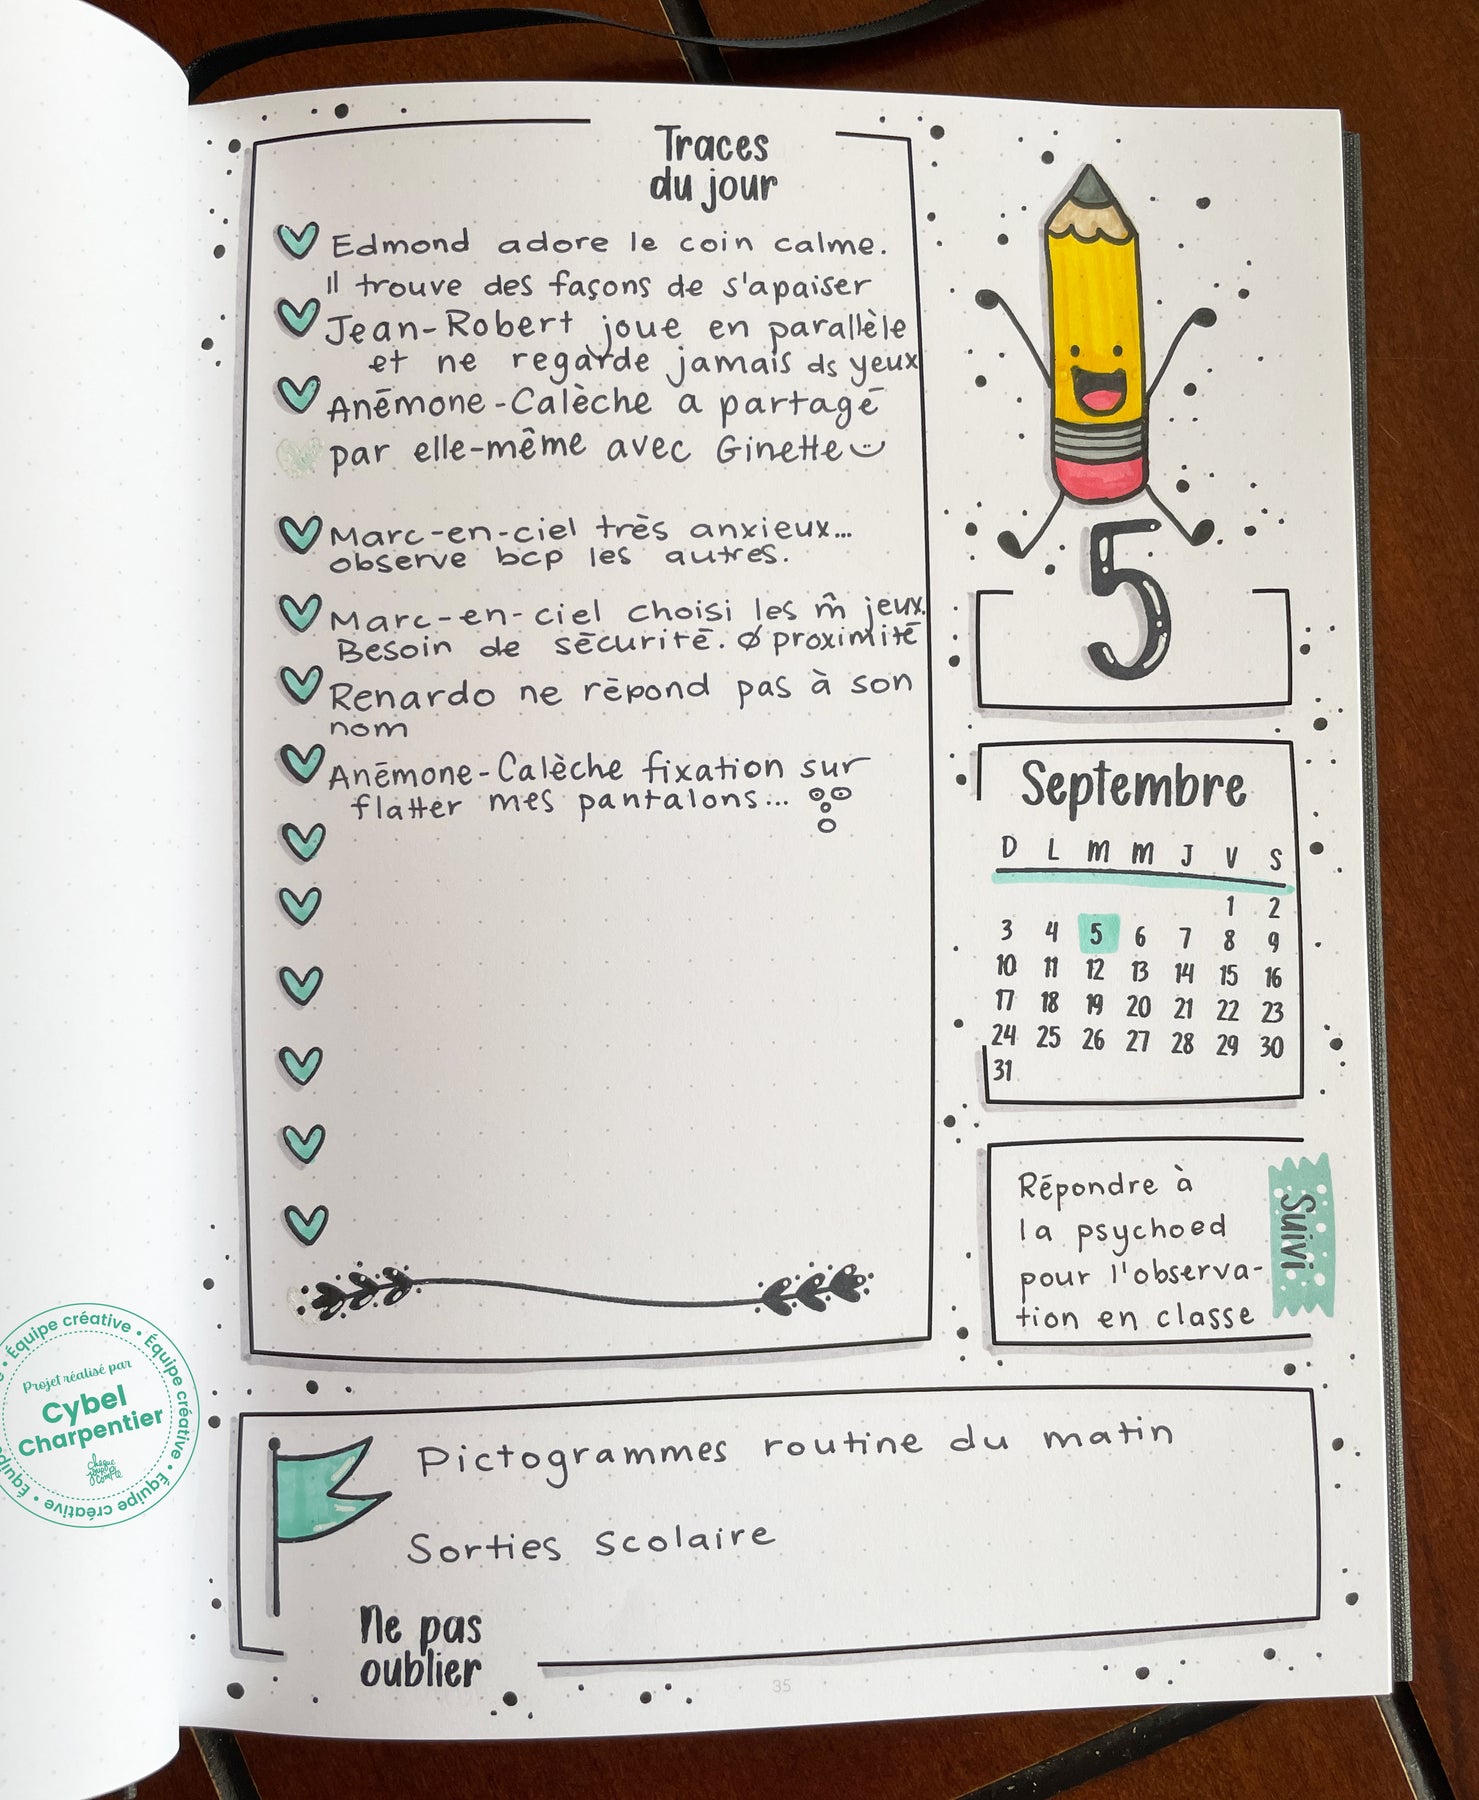 Traces
du jour
Edmond adore le coin calme.
Il trouve des façons de s'apaiser
Jean-Robert joue en parallèle
et ne regarde jamais ds yeux
Anémone-Calèche a partagé
par elle-même avec Ginette
Marc-en-ciel très anxieux...
observe bcp les autres.
Marc-en-ciel choisi les m̂ jeux.
Besoin de sécurité. Ø proximité
Renardo ne répond pas à son
nom
Anémone-Calèche fixation sur
flatter mes pantalons...
5
Septembre
D L M M J V S
1 2
3 4 5 6 7 8 9
10 11 12 13 14 15 16
17 18 19 20 21 22 23
24 25 26 27 28 29 30
31
Répondre à
la psychoed
pour l'observa-
tion en classe
Suivi
Pictogrammes routine du matin
Sorties scolaire
Ne pas
oublier
35
Équipe créative • Équipe créative • Équipe créative • Équipe
Projet réalisé par
Cybel
Charpentier
chaque
jour
compte